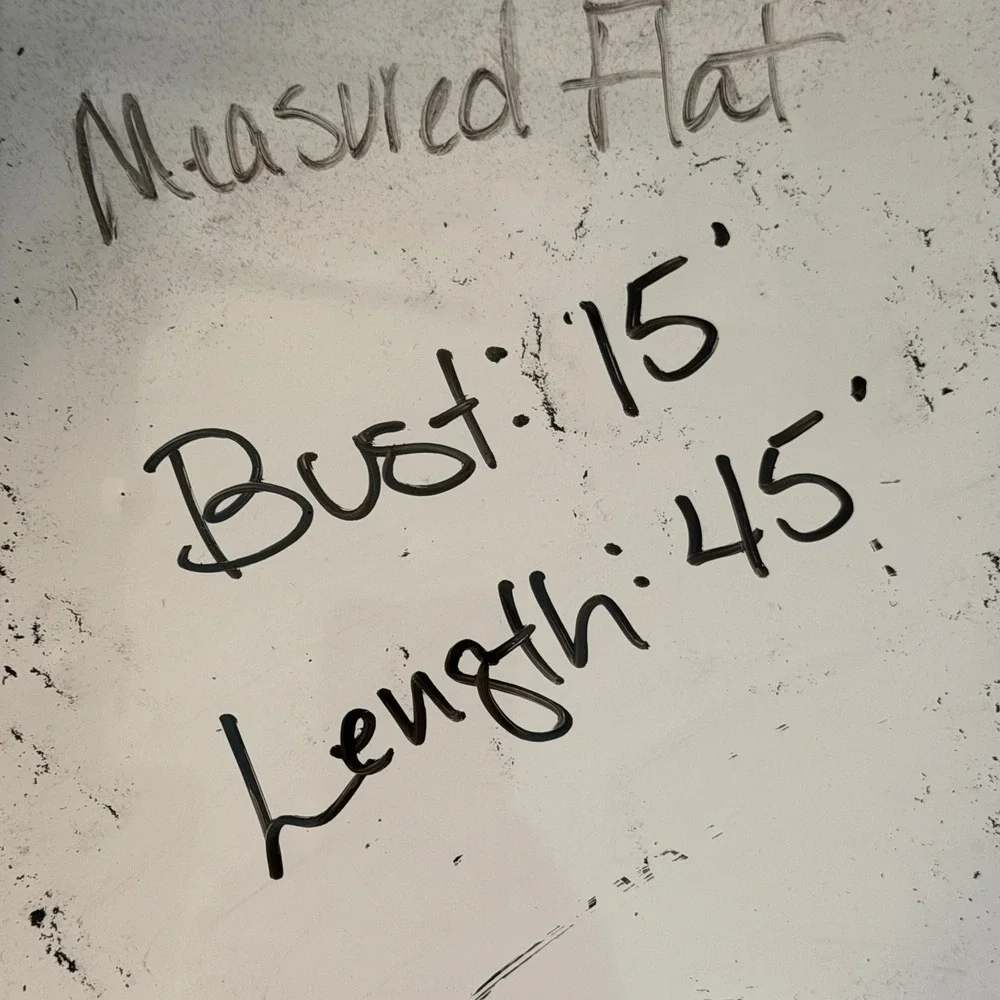 Measured Flat
Bust: 15'
Length: 45'